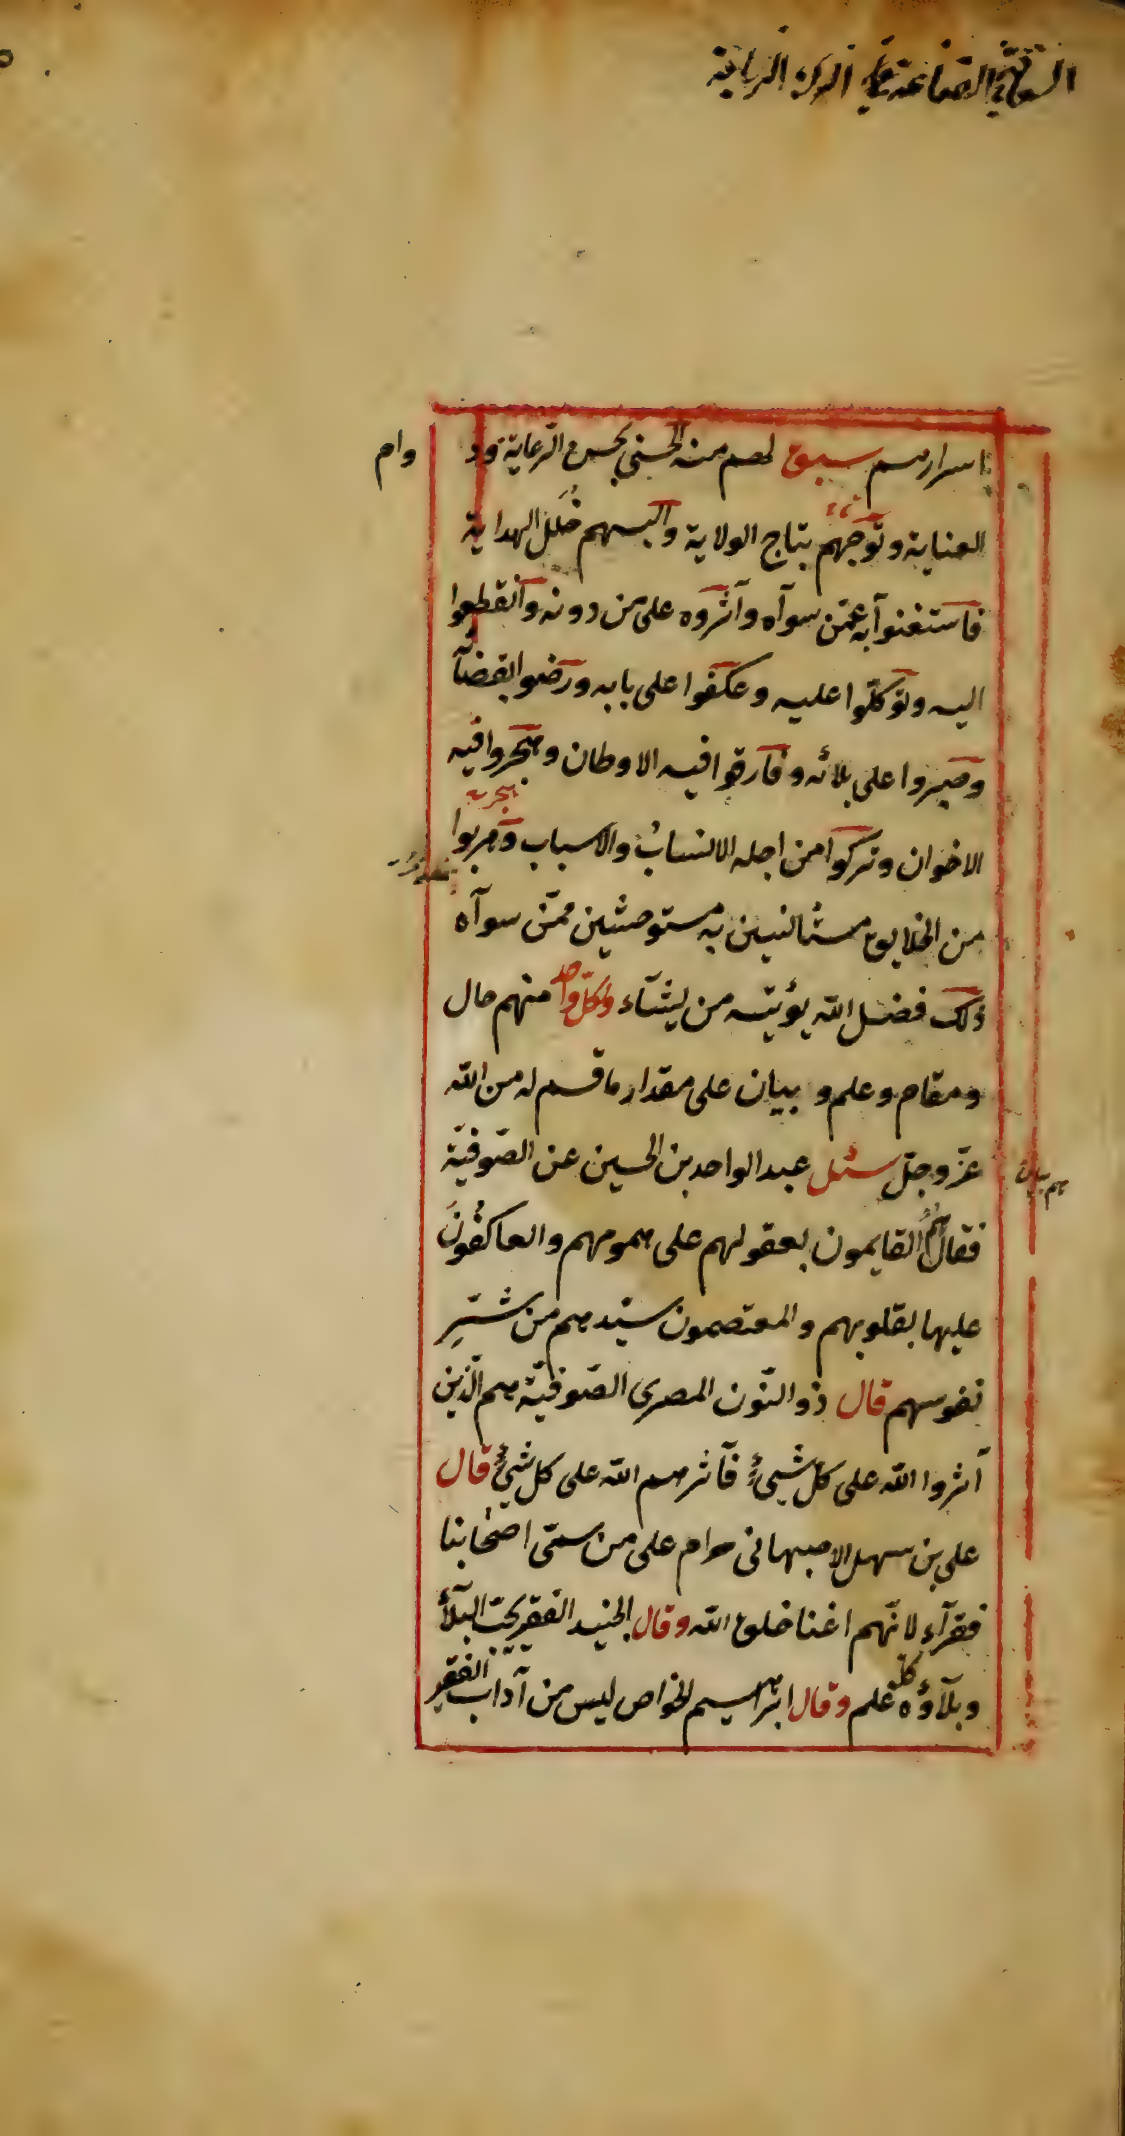 اسرارهم سبق لهم منه الحسنى بحسن الرعاية ودوام
العناية وتوجهم بتاج الولاية والبسهم حُلَل الهداية
فاستغنوا به عمّن سوآه وآثروه على من دونه وانقطعوا
اليه وتوكلّوا عليه وعكفوا على بابه ورضوا بقضآ
وصبروا على بلائه وفارقوا فيه الاوطان وهجروا فيه
الاخوان وتركوا من اجله الانساب والاسباب وهربوا
من الخلايق مستانسين به مستوحشين ممّن سوآه
ذلك فضل الله يؤتيه من يشآء ولكلّ واحد منهم حال
ومقام وعلم وبيان على مقدار ما قسم له من الله
عزّ وجلّ سئل عبد الواحد بن الحسين عن الصّوفيّة
فقال هُمُ القايمون بعقولهم على همومهم والعاكفُونَ
عليها بقلوبهم والمعتصمون بسيّدهم من شرِّ
نفوسهم قال ذو النّون المصرى الصّوفيّة هم الّذين
آثروا الله على كلّ شيئٍ فآثرهم الله على كل شيئٍ قال
على بن سهل الاصبهانى حرام على من سمّى اصحابنا
فقرآء لانّهم اغنا خلق الله وقال الجنيد الفقر بحر البلآء
وبلآؤه كلّه علم وقال ابرهيم الخواص ليس من آداب الفقير